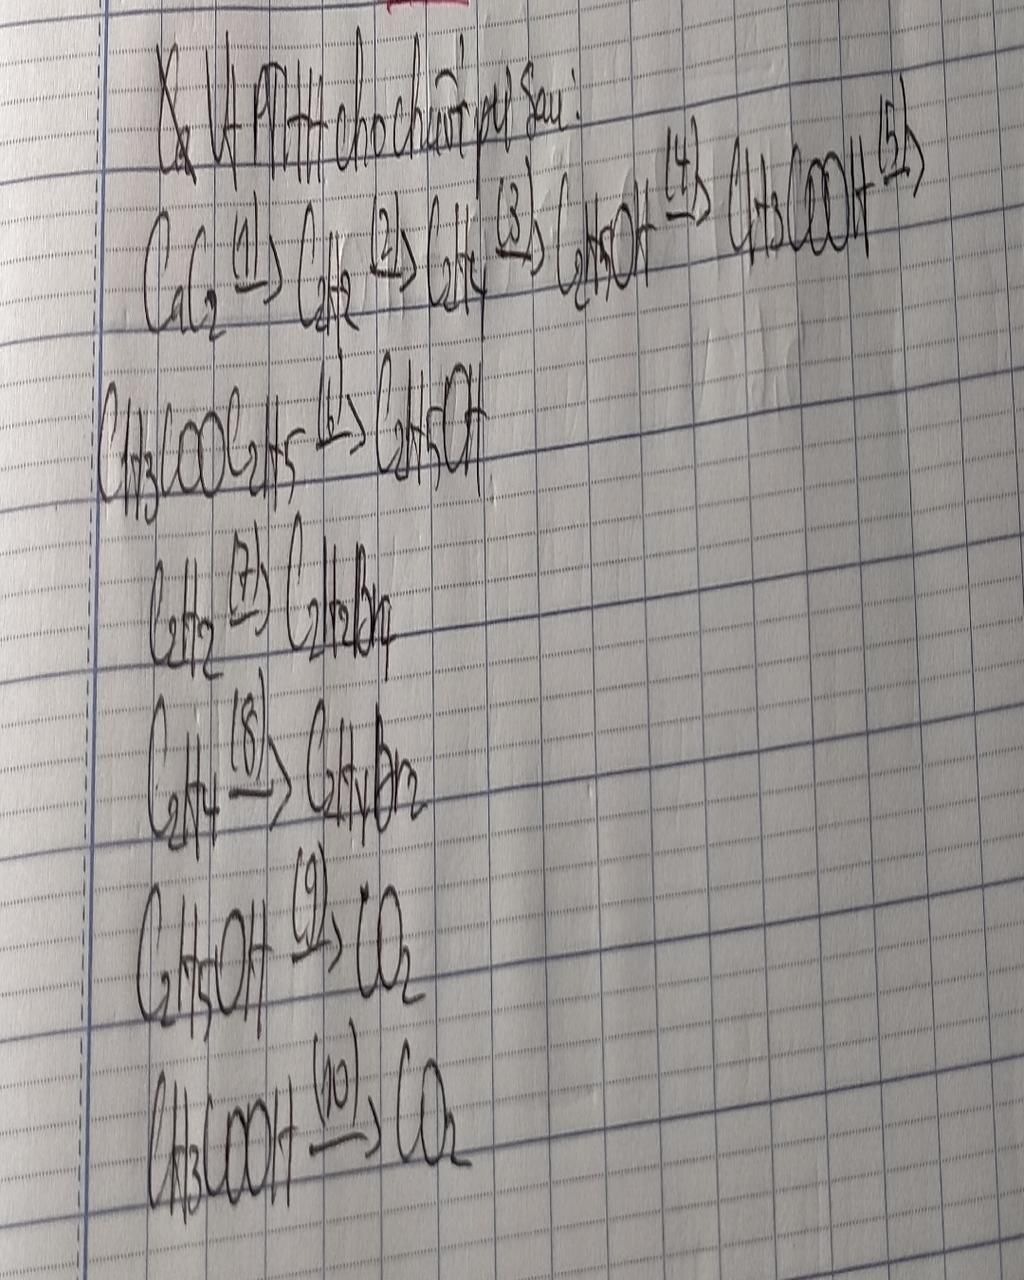 Vt PTHH cho chuỗi pư sau:
CaC2 (1)→ C2H2 (2)→ C2H4 (3)→ C2H5OH (4)→ CH3COOH (5)→
CH3COOC2H5 (6)→ C2H5OH
C2H2 (7)→ C2H2Br4
C2H4 (8)→ C2H4Br2
C2H5OH (9)→ CO2
CH3COOH (10)→ CO2